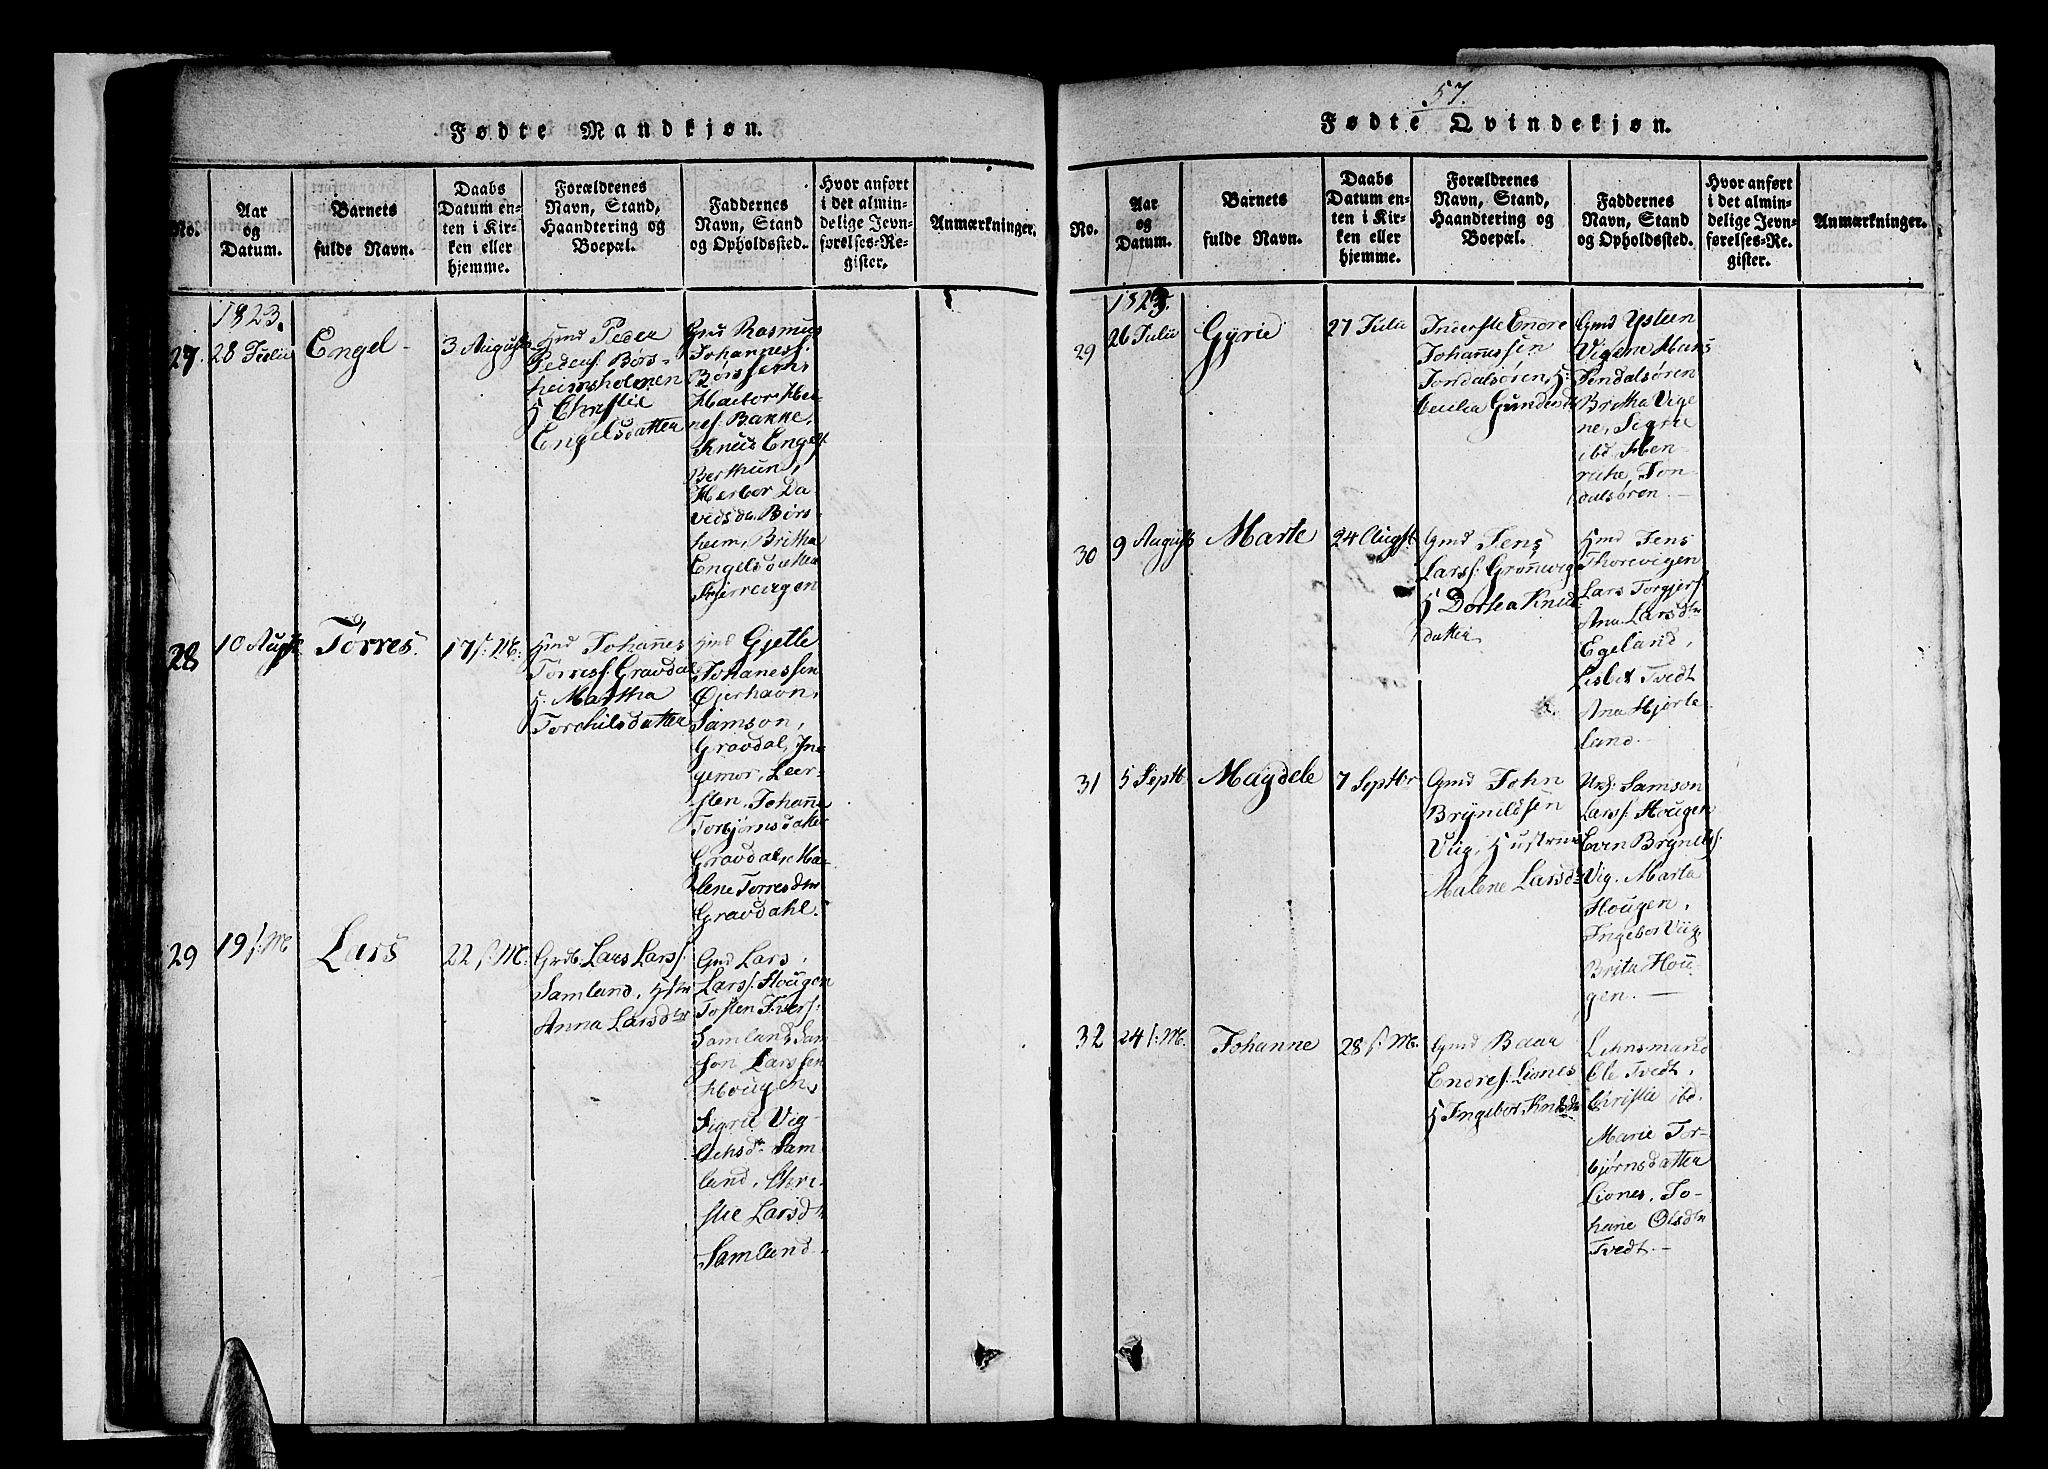 57.
Fødte Mandkjøn.
No.
Aar
og
Datum.
Barnets
fulde Navn.
Daabs
Datum en-
ten i Kir-
ken eller
hjemme.
Forældrenes
Navn, Stand,
Haandtering og
Boepæl.
Faddernes
Navn, Stand
og Opholdssted.
Hvor anført
i det almin-
delige Jevn-
førelses-Re-
gister.
Anmærkninger.
1823.
27.
28 Julii
Engel
3 August
Hmd Peder
Peders. Børs-
heimsholmen
H. Christie
Engelsdatter
Gmd Rasmus
Johanness.
Børsheim,
Bakke,
Knud Engels.
Berthun,
Herbor Da-
vidsdr. Børs-
heim, Britha
Engelsdatter
28
10 August
Tørres
17 s. M.
Hmd Johañes
Tørress. Gravdal
H. Martha
Torchilsdatter
Hmd Gjetle
Johanessen
Øierhavn,
Samson,
Gravdal, In-
gemor, Leer-
Johañe
Torbjørnsdatter
Gravdal, Ma-
lene Tørresdtr
Gravdahl.
29
19 s. M
Lars
22 s. M.
Lars Larss.
Samland, Hstr
Anna Larsdtr
Gmd Lars
Larss. Hougen
Tosten Ivers.
Samland, Sam-
son Larssen
Hougen,
Sigrie Vig-
Sam-
land, Chri-
stie Larsdtr
Samland
Fødte Qvindekjøn.
No.
Aar
og
Datum.
Barnets
fulde Navn.
Daabs
Datum en-
ten i Kir-
ken eller
hjemme.
Forældrenes
Navn, Stand,
Haandtering og
Boepæl.
Faddernes
Navn, Stand
og Opholdssted.
Hvor anført
i det almin-
delige Jevn-
førelses-Re-
gister.
Anmærkninger.
1823.
29
26 Julii
Gyrie
27 Julii
Inderste Endre
Johañessen
Jondalsøren, H.
Cecilia
Gmd Ysteen
Vigene, Mans
Jondalsøren
Britha Vige-
ne, Sigrie
ibd, Hen-
rikke, Jon-
dalsøren.
30
9 August
Marte
24 Augst
Gmd Jens
Larss. Gronnvig
H Dorthea Knuds-
datter
Hmd Jens
Thorevigen
Lars Torgjers.
Ana Larsdtr
Egeland,
Lisbet Tvedt
Ana Hjorte-
land.
31
5 Septb
Magdele
7 Septbr
Gmd John
Brynildsen
Viig, Hustrue
Malene Larsdtr
Samson
Larss. Hougen
Even Brynilds.
Vig. Marta
Hougen,
Ingebor Viig
Brita Hou-
gen.
32
24 s. M.
Johanne
28 s. M.
Gmd Baar
Endres. Liones
H Ingebor Knudsdtr
Lehnsmand
Ole Tvedt,
Christie ibd.
Marie Tor-
bjørnsdatter
Liones, Jo-
hane Olsdtr
Tvedt.